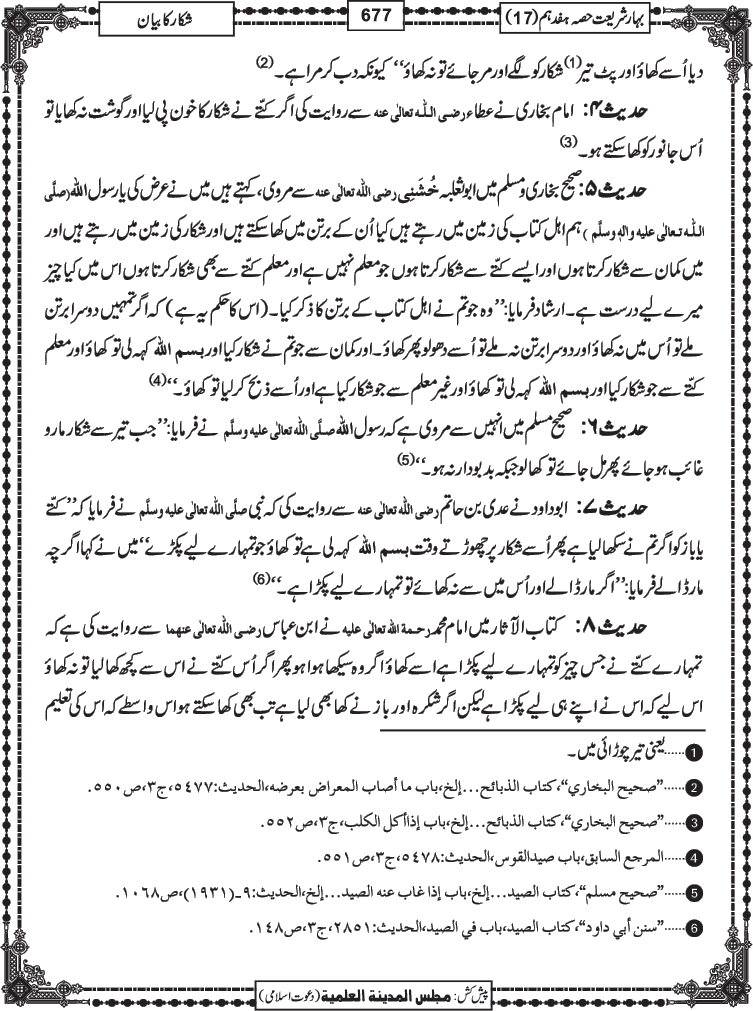 بہارشریعت حصہ ہفدہم (17)
677
شکار کا بیان
دیا اُسے کھاؤ اور پٹ تیر(1) شکار کو لگے اور مر جائے تو نہ کھاؤ‘‘ کیونکہ دب کر مرا ہے۔(2)
حدیث ۴: امام بخاری نے عطاء رضی اللہ تعالٰی عنہ سے روایت کی اگر کتّے نے شکار کا خون پی لیا اور گوشت نہ کھایا تو
اُس جانور کو کھا سکتے ہو۔(3)
حدیث ۵: صحیح بخاری و مسلم میں ابو ثعلبہ خُشَنِی رضی اللہ تعالٰی عنہ سے مروی، کہتے ہیں میں نے عرض کی یارسول اللہ (صلَّی
اللہ تعالٰی علیہ واٰلہٖ وسلَّم ) ہم اہل کتاب کی زمین میں رہتے ہیں کیا اُن کے برتن میں کھا سکتے ہیں اور شکار کی زمین میں رہتے ہیں اور
میں کمان سے شکار کرتا ہوں اور ایسے کتّے سے شکار کرتا ہوں جو معلم نہیں ہے اور معلم کتّے سے بھی شکار کرتا ہوں اس میں کیا چیز
میرے لیے درست ہے۔ ارشاد فرمایا: ’’وہ جو تم نے اہل کتاب کے برتن کا ذکر کیا۔ (اس کا حکم یہ ہے ) کہ اگر تمھیں دوسرا برتن
ملے تو اُس میں نہ کھاؤ اور دوسرا برتن نہ ملے تو اُسے دھولو پھر کھاؤ۔ اور کمان سے جو تم نے شکار کیا اور بسم اللہ کہہ لی تو کھاؤ اور معلم
کتّے سے جو شکار کیا اور بسم اللہ کہہ لی تو کھاؤ اور غیر معلم سے جو شکار کیا ہے اور اُسے ذبح کرلیا تو کھاؤ۔‘‘(4)
حدیث ۶: صحیح مسلم میں انہیں سے مروی ہے کہ رسول اللہ صلَّی اللہ تعالٰی علیہ وسلَّم نے فرمایا: ’’جب تیر سے شکار مارو
غائب ہو جائے پھر مل جائے تو کھا لو جبکہ بدبودار نہ ہو۔‘‘(5)
حدیث ۷: ابو داود نے عدی بن حاتم رضی اللہ تعالٰی عنہ سے روایت کی کہ نبی صلَّی اللہ تعالٰی علیہ وسلَّم نے فرمایا کہ ’’کتّے
یا باز کو اگر تم نے سکھا لیا ہے پھر اُسے شکار پر چھوڑتے وقت بسم اللہ کہہ لی ہے تو کھاؤ جو تمہارے لیے پکڑے‘‘ میں نے کہا اگرچہ
مار ڈالے فرمایا: ’’اگر مار ڈالے اور اُس میں سے نہ کھائے تو تمہارے لیے پکڑا ہے۔‘‘(6)
حدیث ۸: کتاب الآثار میں امام محمد رحمۃ اللہ تعالٰی علیہ نے ابن عباس رضی اللہ تعالٰی عنہما سے روایت کی ہے کہ
تمہارے کتّے نے جس چیز کو تمہارے لیے پکڑا ہے اسے کھاؤ اگر وہ سیکھا ہوا ہو پھر اگر اُس کتّے نے اس سے کچھ کھا لیا تو نہ کھاؤ
اس لیے کہ اس نے اپنے ہی لیے پکڑا ہے لیکن اگر شکرہ اور باز نے کھا بھی لیا ہے تب بھی کھا سکتے ہو اس واسطے کہ اس کی تعلیم
1......یعنی تیر چوڑائی میں۔
2......”صحيح البخاري“،كتاب الذبائح...إلخ،باب ما أصاب المعراض بعرضه،الحديث:٥٤٧٧،ج٣،ص٥٥٠.
3......”صحيح البخاري“،كتاب الذبائح...إلخ،باب إذاأكل الكلب،ج٣،ص٥٥٢.
4......المرجع السابق،باب صيدالقوس،الحديث:٥٤٧٨،ج٣،ص٥٥١.
5......”صحيح مسلم“،كتاب الصيد...إلخ،باب إذا غاب عنه الصيد...إلخ،الحديث:٩ـ(١٩٣١)،ص١٠٦٨.
6......”سنن أبي داود“،كتاب الصيد،باب في الصيد،الحديث:٢٨٥١،ج٣،ص١٤٨.
پیش کش: مجلس المدینۃ العلمیۃ (دعوت اسلامی)